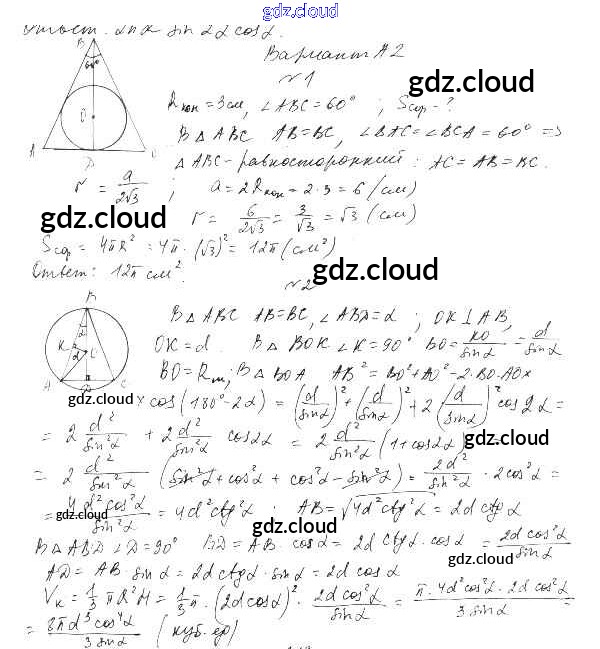 gdz.cloud
Ответ: sin 2α cos α.
Вариант А2
№1
B
60°
O
A D C
Rкон = 3 см, ∠ABC = 60° ; Sсф - ?
gdz.cloud
В △ ABC AB = BC, ∠BAC = ∠BCA = 60° =>
△ ABC - равносторонний : AC = AB = BC.
r = a/2√3 ; a = 2Rкон = 2·3 = 6 (см)
gdz.cloud
r = 6/2√3 = 3/√3 = √3 (см)
Sсф = 4πR² = 4π·(√3)² = 12π (см²)
Ответ: 12π см².
gdz.cloud
№2
B
α
K
O
A
В △ ABC AB = BC, ∠ABD = α ; OK ⊥ AB,
OK = d. В △ BOK ∠K = 90° BO = KO/sin α = d/sin α
BO = Rш; В △ BOA AB² = BO² + AO² - 2·BO·AO×
gdz.cloud
× cos (180° - 2α) = (d/sin α)² + (d/sin α)² + 2(d/sin α)² cos 2α =
= 2 d²/sin²α + 2 d²/sin²α cos 2α = 2 d²/sin²α (1 + cos 2α) =
gdz.cloud
= 2 d²/sin²α (sin²α + cos²α + cos²α - sin²α) = 2d²/sin²α · 2cos²α =
= 4d²cos²α/sin²α = 4d²ctg²α ; AB = √4d²ctg²α = 2d ctg α
gdz.cloud
gdz.cloud
В △ ABD ∠D = 90° BD = AB · cos α = 2d ctg α · cos α = 2d cos²α/sin α
gdz.cloud
AD = AB sin α = 2d ctg α · sin α = 2d cos α
Vк = 1/3 πR²H = 1/3 π · (2d cos α)² · 2d cos²α/sin α = π·4d²cos²α · 2d cos²α/3 sin α =
= 8πd³cos⁴α/3 sin α (куб. ед)
gdz.cloud